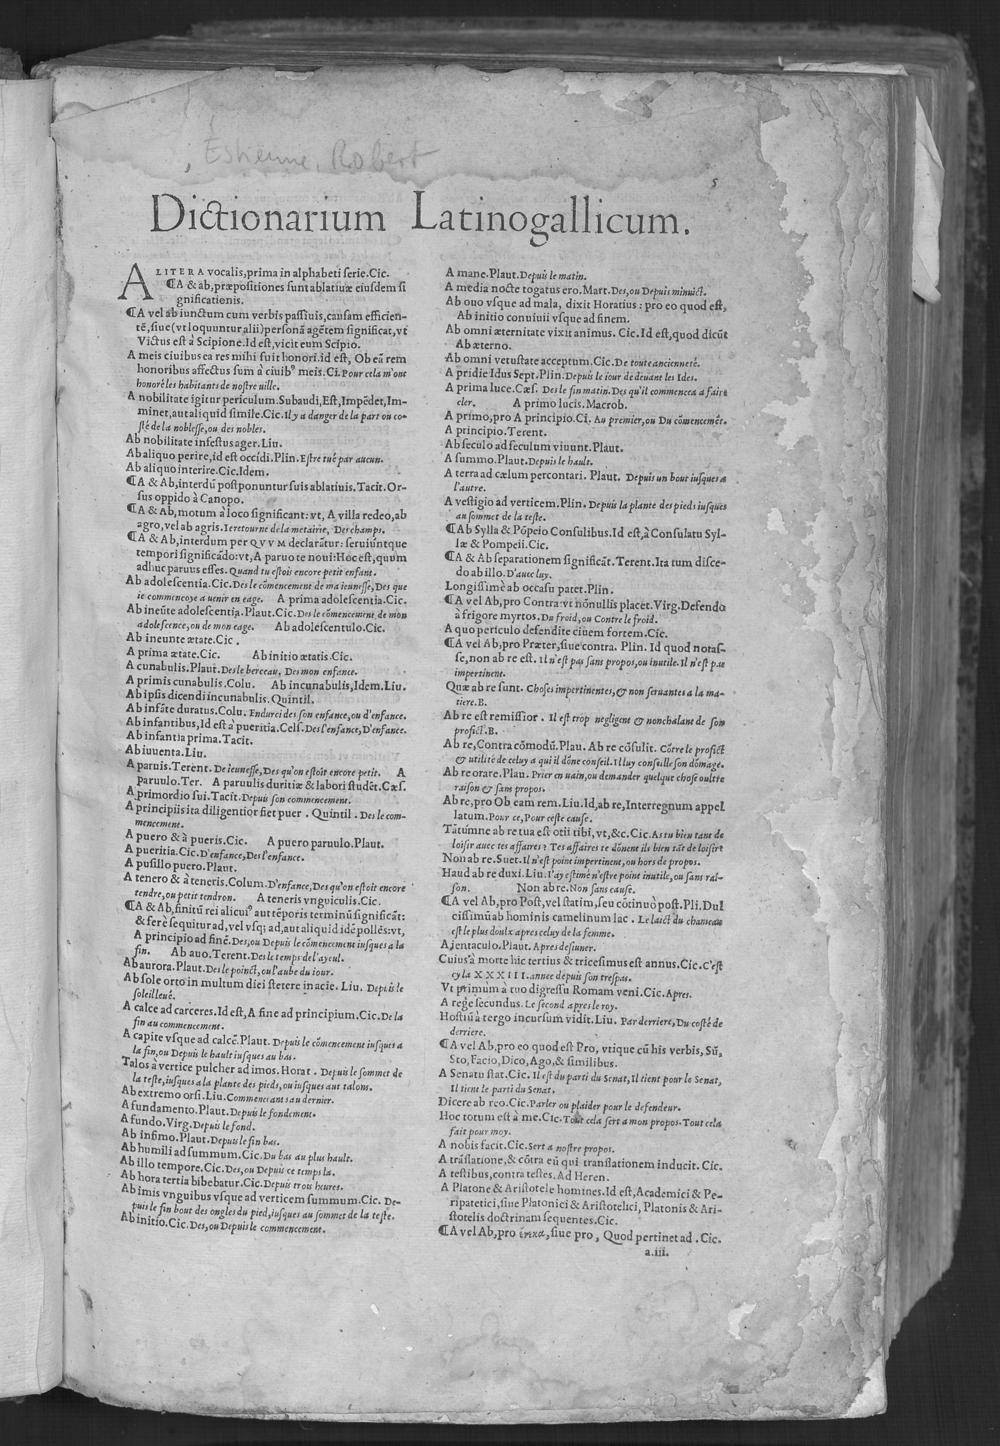 Estienne, Robert
5
Dictionarium Latinogallicum.
A LITERA vocalis, prima in alphabeti serie. Cic.
¶A & ab, præpositiones sunt ablatiuæ eiusdem si
gnificationis.
¶A vel ab iunctum cum verbis passiuis, causam efficien-
tē, siue (vt loquuntur alii) personā agētem significat, vt
Victus est à Scipione. Id est, vicit eum Scipio.
A meis ciuibus ea res mihi fuit honori. id est, Ob eā rem
honoribus affectus sum à ciuibꝰ meis. Ci. Pour cela m'ont
honoré les habitants de nostre uille.
A nobilitate igitur periculum. Subaudi, Est, Impēdet, Im-
minet, aut aliquid simile. Cic. Il y a danger de la part ou co-
sté de la noblesse, ou des nobles.
Ab nobilitate infestus ager. Liu.
Ab aliquo perire, id est occidi. Plin. Estre tué par aucun.
Ab aliquo interire. Cic. Idem.
¶A & Ab, interdū postponuntur suis ablatiuis. Tacit. Or-
sus oppido à Canopo.
¶A & Ab, motum à loco significant: vt, A villa redeo, ab
agro, vel ab agris. Ie retourne de la metairie, Des champs.
¶A & Ab, interdum per QVVM declarātur: seruiúntque
tempori significādo: vt, A paruo te noui: Hoc est, quum
adhuc paruus esses. Quand tu estois encore petit enfant.
Ab adolescentia. Cic. Des le cōmencement de ma ieunesse, Des que
ie commençoye a uenir en eage. A prima adolescentia. Cic.
Ab ineūte adolescentia. Plaut. Cic. Des le cōmencement de mon
adolescence, ou de mon eage. Ab adolescentulo. Cic.
Ab ineunte ætate. Cic.
A prima ætate. Cic. Ab initio ætatis. Cic.
A cunabulis. Plaut. Des le berceau, Des mon enfance.
A primis cunabulis. Colu. Ab incunabulis, Idem. Liu.
Ab ipsis dicendi incunabulis. Quintil.
Ab infāte duratus. Colu. Endurci des son enfance, ou d'enfance.
Ab infantibus, Id est à pueritia. Cels. Des l'enfance, D'enfance.
Ab infantia prima. Tacit.
Ab iuuenta. Liu.
A paruis. Terent. De ieunesse, Des qu'on estoit encore petit. A
paruulo. Ter. A paruulis duritiæ & labori studēt. Cæs.
A primordio sui. Tacit. Depuis son commencement.
A principiis ita diligentior fiet puer. Quintil. Des le com-
mencement.
A puero & à pueris. Cic. A puero paruulo. Plaut.
A pueritia. Cic. D'enfance, Des l'enfance.
A pusillo puero. Plaut.
A tenero & à teneris. Colum. D'enfance, Des qu'on estoit encore
tendre, ou petit tendron. A teneris vnguiculis. Cic.
¶A & Ab, finitū rei alicuiꝰ aut tēporis terminū significāt:
& ferè sequitur ad, vel vsq; ad, aut aliquid idē pollēs: vt,
A principio ad finē. Des, ou Depuis le cōmencement iusques a la
fin. Ab auo. Terent. Des le temps de l'ayeul.
Ab aurora. Plaut. Des le poinct, ou l'aube du iour.
Ab sole orto in multum diei stetere in acie. Liu. Depuis le
soleilleué.
A calce ad carceres. Id est, A fine ad principium. Cic. De la
fin au commencement.
A capite vsque ad calcē. Plaut. Depuis le cōmencement iusques a
la fin, ou Depuis le hault iusques au bas.
Talos à vertice pulcher ad imos. Horat. Depuis le sommet de
la teste, iusques a la plante des pieds, ou iusques aux talons.
Ab extremo orsi. Liu. Commenceans au dernier.
A fundamento. Plaut. Depuis le fondement.
A fundo. Virg. Depuis le fond.
Ab infimo. Plaut. Depuis le fin bas.
Ab humili ad summum. Cic. Du bas au plus hault.
Ab illo tempore. Cic. Des, ou Depuis ce temps la.
Ab hora tertia bibebatur. Cic. Depuis trois heures.
Ab imis vnguibus vsque ad verticem summum. Cic. De-
puis le fin bout des ongles du pied, iusques au sommet de la teste.
Ab initio. Cic. Des, ou Depuis le commencement.
A mane. Plaut. Depuis le matin.
A media nocte togatus ero. Mart. Des, ou Depuis minuict.
Ab ouo vsque ad mala, dixit Horatius: pro eo quod est,
Ab initio conuiuii vsque ad finem.
Ab omni æternitate vixit animus. Cic. Id est, quod dicūt
Ab æterno.
Ab omni vetustate acceptum. Cic. De toute ancienneté.
A pridie Idus Sept. Plin. Depuis le iour de deuant les Ides.
A prima luce. Cæs. Des le fin matin. Des qu'il commencea a faire
cler. A primo lucis. Macrob.
A primo, pro A principio. Ci. Au premier, ou Du cōmencemēt.
A principio. Terent.
Ab seculo ad seculum viuunt. Plaut.
A summo. Plaut. Depuis le hault.
A terra ad cælum percontari. Plaut. Depuis un bout iusques a
l'autre.
A vestigio ad verticem. Plin. Depuis la plante des pieds iusques
au sommet de la teste.
¶Ab Sylla & Pōpeio Consulibus. Id est, à Consulatu Syl-
læ & Pompeii. Cic.
¶A & Ab separationem significāt. Terent. Ita tum disce-
do ab illo. D'auec luy.
Longissimè ab occasu patet. Plin.
¶A vel Ab, pro Contra: vt nōnullis placet. Virg. Defendo
à frigore myrtos. Du froid, ou Contre le froid.
A quo periculo defendite ciuem fortem. Cic.
¶A vel Ab, pro Præter, siue contra. Plin. Id quod notas-
se, non ab re est. Il n'est pas sans propos, ou inutile. Il n'est pas
impertinent.
Quæ ab re sunt. Choses impertinentes, & non seruantes a la ma-
tiere. B.
Ab re est remissior. Il est trop negligent & nonchalant de son
profict. B.
Ab re, Contra cōmodū. Plau. Ab re cōsulit. Cōtre le profict
& utilité de celuy a qui il dōne conseil. Il luy conseille son dōmage.
Ab re orare. Plau. Prier en uain, ou demander quelque chose oultre
raison & sans propos.
Ab re, pro Ob eam rem. Liu. Id, ab re, Interregnum appel
latum. Pour ce, Pour ceste cause.
Tātumne ab re tua est otii tibi, vt, &c. Cic. As tu bien tant de
loisir auec tes affaires? Tes affaires te dōnent ils bien tāt de loisir?
Non ab re. Suet. Il n'est point impertinent, ou hors de propos.
Haud ab re duxi. Liu. I'ay estimé n'estre point inutile, ou sans rai-
son. Non ab re. Non sans cause.
¶A vel Ab, pro Post, vel statim, seu cōtinuò post. Pli. Dul
cissimū ab hominis camelinum lac. Le laict du chameau
est le plus doulx apres celuy de la femme.
A ientaculo. Plaut. Apres desiuner.
Cuius à morte hic tertius & tricesimus est annus. Cic. C'est
cy la XXXIII. annee depuis son trespas.
Vt primùm à tuo digressu Romam veni. Cic. Apres.
A rege secundus. Le second apres le roy.
Hostiū à tergo incursum vidit. Liu. Par derriere, Du costé de
derriere.
¶A vel Ab, pro eo quod est Pro, vtique cū his verbis, Sū,
Sto, Facio, Dico, Ago, & similibus.
A Senatu stat. Cic. Il est du parti du Senat, Il tient pour le Senat,
Il tient le parti du Senat.
Dicere ab reo. Cic. Parler ou plaider pour le defendeur.
Hoc totum est à me. Cic. Tout cela sert a mon propos. Tout cela
fait pour moy.
A nobis facit. Cic. Sert a nostre propos.
A trāslatione, & cōtra eū qui translationem inducit. Cic.
A testibus, contra testes. Ad Heren.
A Platone & Aristotele homines. Id est, Academici & Pe-
ripatetici, siue Platonici & Aristotelici, Platonis & Ari-
stotelis doctrinam sequentes. Cic.
¶A vel Ab, pro ἕνεκα, siue pro, Quod pertinet ad. Cic.
a.iii.